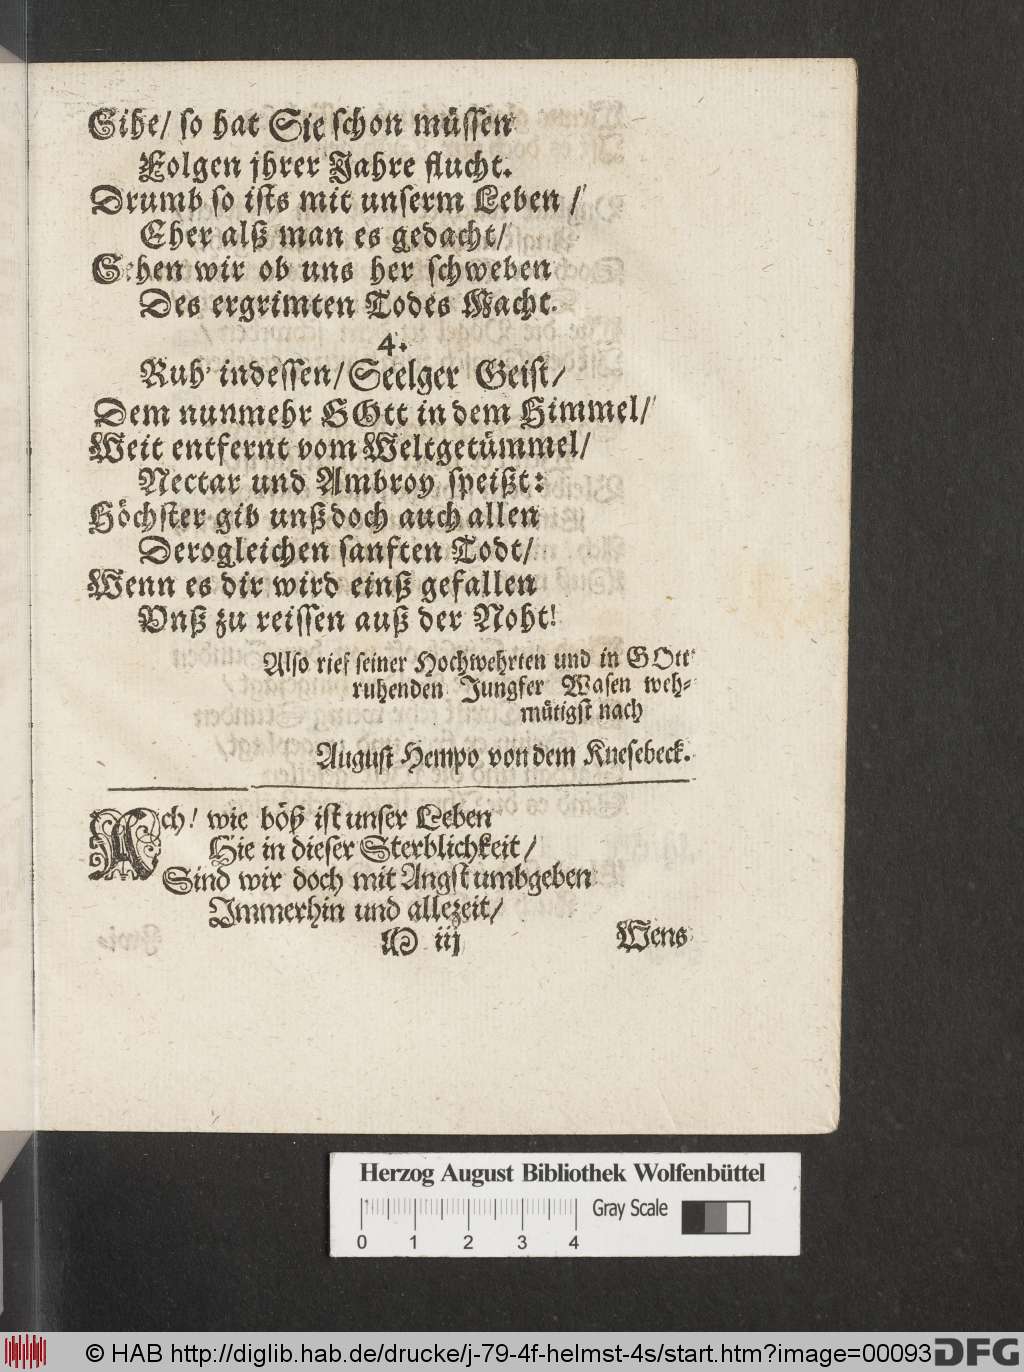 Gihe/ so hat Sie schon müssen
Folgen jhrer Jahre flucht.
Drumb so ists mit unserm Leben /
Eher alß man es gedacht/
Sehen wir ob uns her schweben
Des ergrimten Todes Macht.
4.
Ruh indessen/ Seelger Geist/
Dem nunmehr GOtt in dem Himmel/
Weit entfernt vom Weltgetümmel/
Nectar und Ambroy speißt:
Höchster gib unß doch auch allen
Derogleichen sanften Todt/
Wenn es dir wird einß gefallen
Vnß zu reissen auß der Noht!
Also rief seiner Hochwehrten und in GOtt
ruhenden Jungfer Wasen weh-
mütigst nach
August Hempo von dem Knesebeck.
Ach! wie böß ist unser Leben
Hie in dieser Sterblichkeit/
Sind wir doch mit Angst umbgeben
Immerhin und allezeit/
M iij Wens
Herzog August Bibliothek Wolfenbüttel
Gray Scale
0 1 2 3 4
© HAB http://diglib.hab.de/drucke/j-79-4f-helmst-4s/start.htm?image=00093
DFG